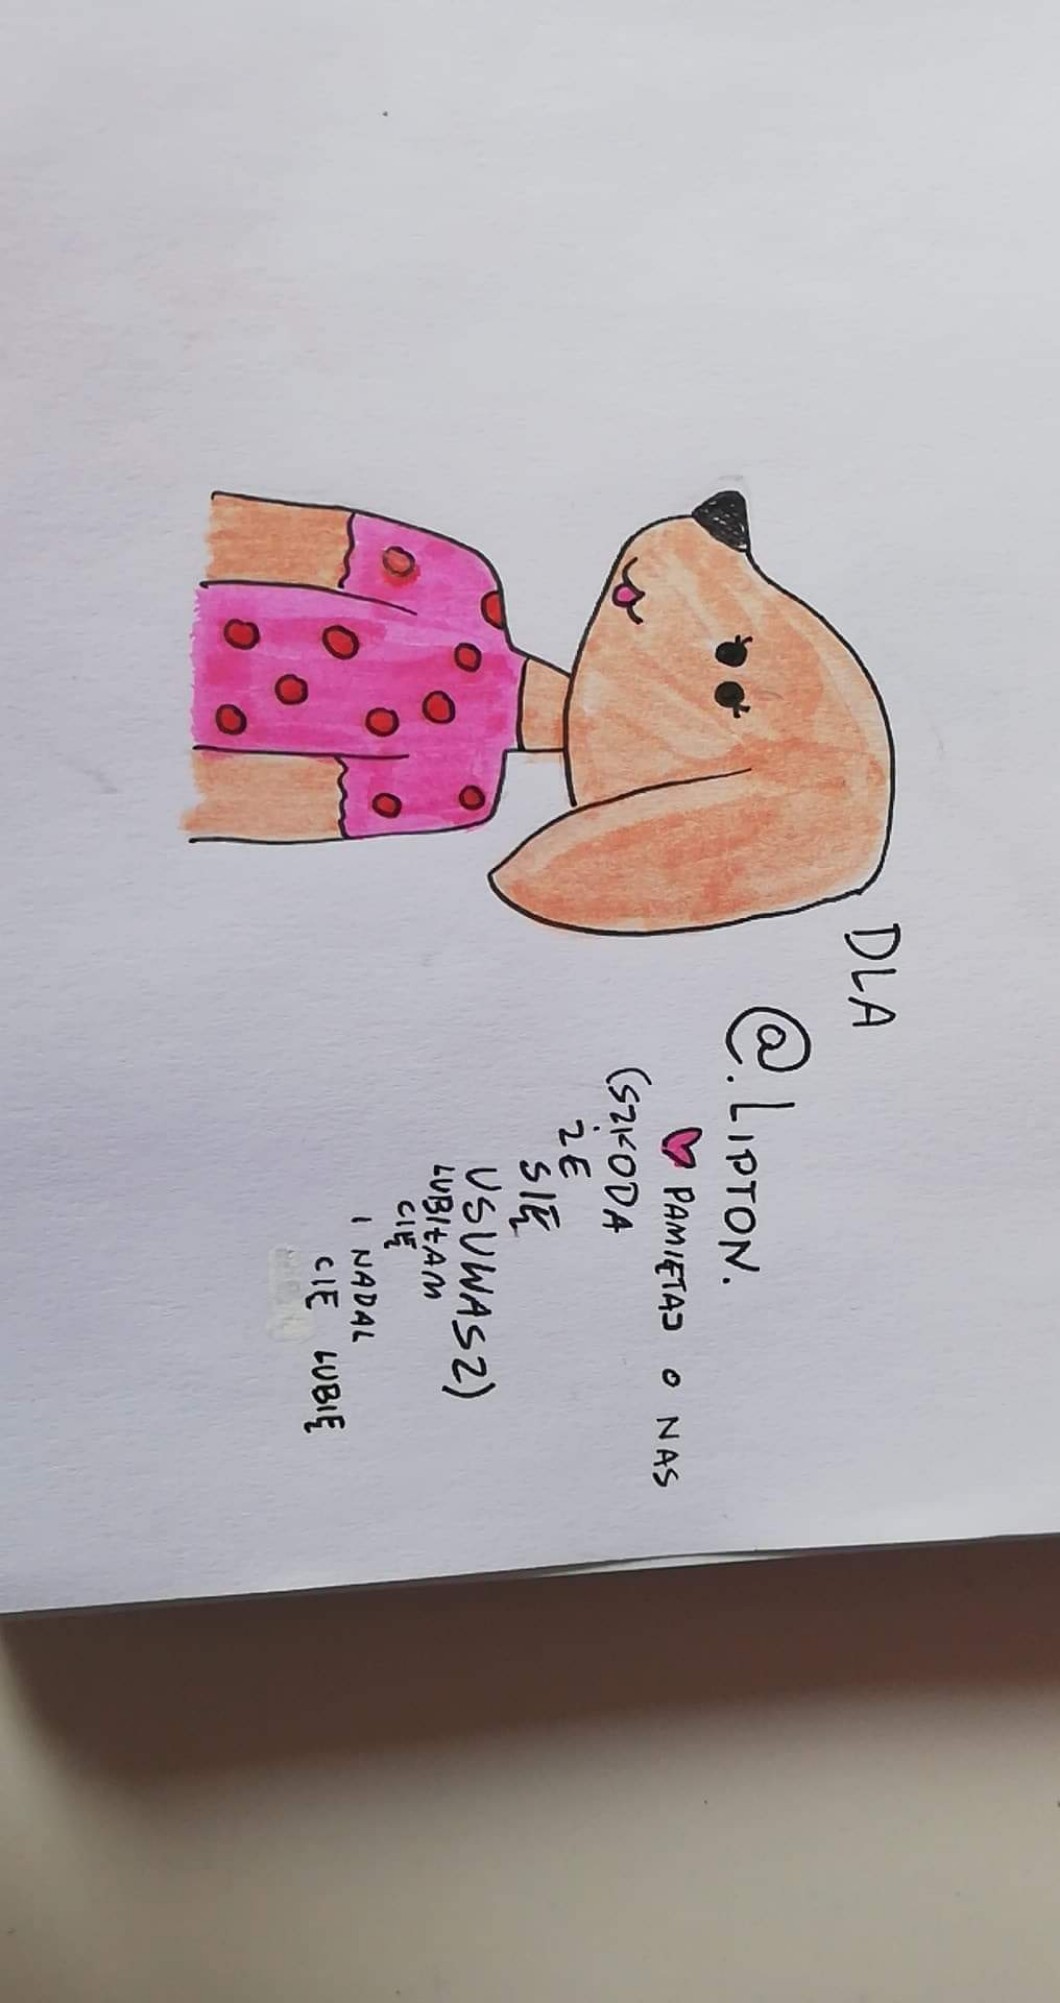 DLA
@.LIPTON.
♥ PAMIĘTAJ O NAS
(SZKODA
ŻE
SIĘ
USUWASZ)
LUBIŁAM
CIĘ
I NADAL
CIĘ LUBIĘ